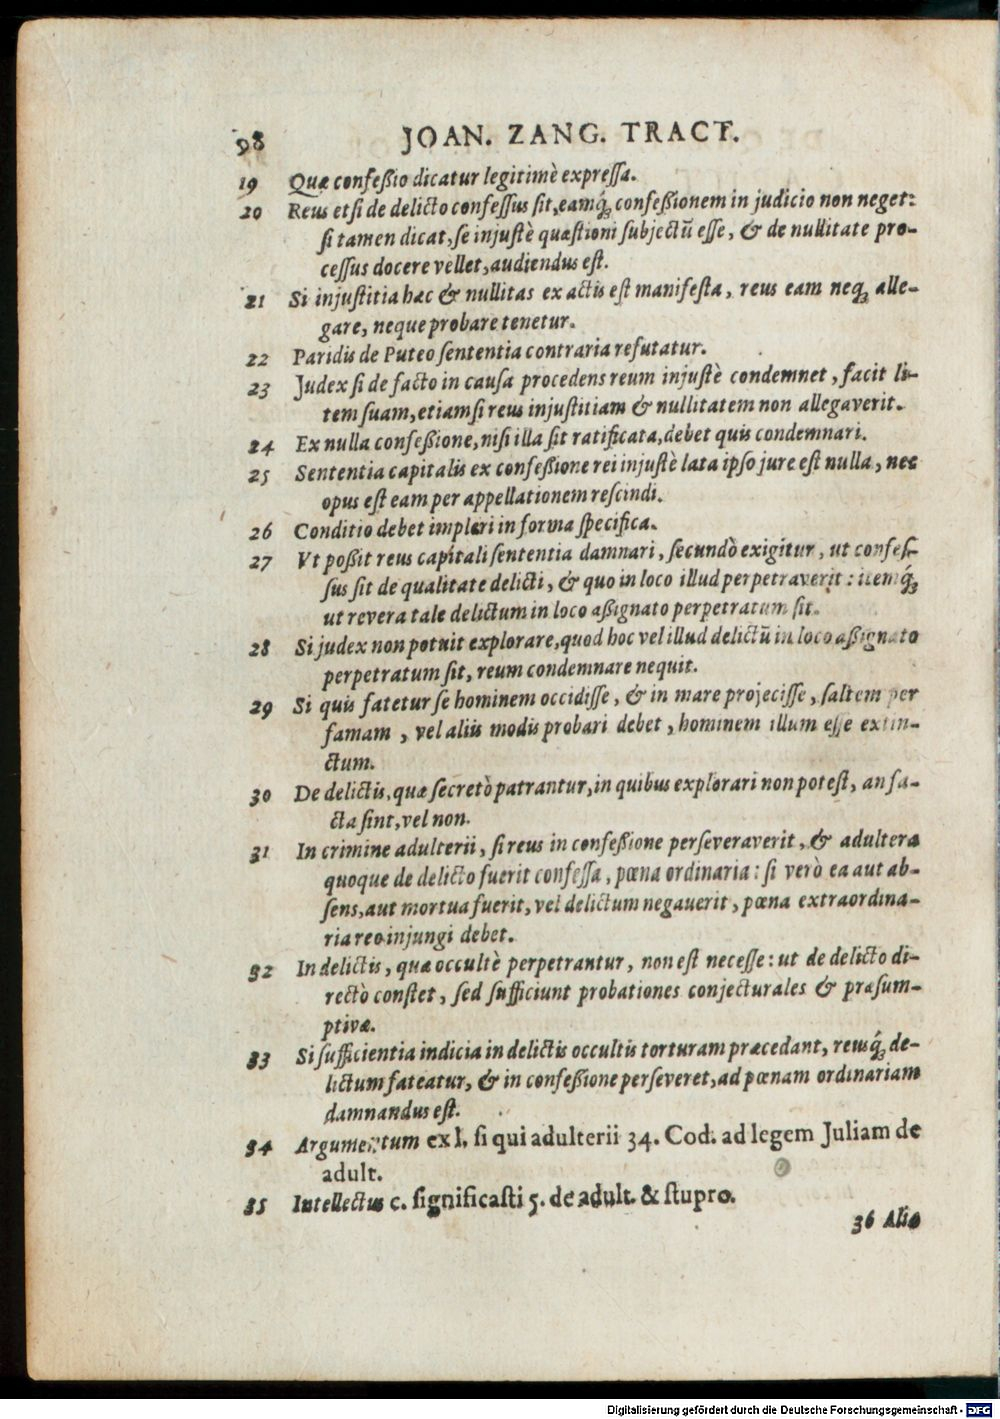 98 JOAN. ZANG. TRACT.
19 Quæ confeßio dicatur legitimè expreſſa.
20 Reus etſi de delicto confeſſus ſit, eamq́ꝫ confeßionem in judicio non neget:
ſi tamen dicat, ſe injuſtè quæſtioni ſubjectũ eſſe, & de nullitate pro-
ceſſus docere vellet, audiendus eſt.
21 Si injuſtitia hæc & nullitas ex actis eſt manifeſta, reus eam neqꝫ alle-
gare, neque probare tenetur.
22 Paridis de Puteo ſententia contraria refutatur.
23 Judex ſi de facto in cauſa procedens reum injuſtè condemnet, facit li-
tem ſuam, etiamſi reus injuſtitiam & nullitatem non allegaverit.
24 Ex nulla confeßione, niſi illa ſit ratificata, debet quis condemnari.
25 Sententia capitalis ex confeßione rei injuſtè lata ipſo jure eſt nulla, nec
opus eſt eam per appellationem reſcindi.
26 Conditio debet impleri in forma ſpecifica.
27 Vt poßit reus capitali ſententia damnari, ſecundò exigitur, ut confeſ-
ſus ſit de qualitate delicti, & quo in loco illud perpetraverit: itemq́ꝫ
ut revera tale delictum in loco aßignato perpetratum ſit.
28 Si judex non potuit explorare, quod hoc vel illud delictũ in loco aßignato
perpetratum ſit, reum condemnare nequit.
29 Si quis fatetur ſe hominem occidiſſe, & in mare projeciſſe, ſaltem per
famam, vel aliis modis probari debet, hominem illum eſſe extin-
ctum.
30 De delictis, quæ ſecretò patrantur, in quibus explorari non poteſt, an fa-
cta ſint, vel non.
31 In crimine adulterii, ſi reus in confeßione perſeveraverit, & adultera
quoque de delicto fuerit confeſſa, pœna ordinaria: ſi verò ea aut ab-
ſens, aut mortua fuerit, vel delictum negauerit, pœna extraordina-
ria reo injungi debet.
32 In delictis, quæ occultè perpetrantur, non eſt neceſſe: ut de delicto di-
rectò conſtet, ſed ſufficiunt probationes conjecturales & præſum-
ptivæ.
33 Si ſufficientia indicia in delictis occultis torturam præcedant, reusq́ꝫ de-
lictum fateatur, & in confeßione perſeveret, ad pœnam ordinariam
damnandus eſt.
34 Argumentum ex l. ſi qui adulterii 34. Cod. ad legem Juliam de
adult.
35 Intellectus c. ſignificaſti 5. de adult. & ſtupro.
36 Alia
Digitalisierung gefördert durch die Deutsche Forschungsgemeinschaft - DFG